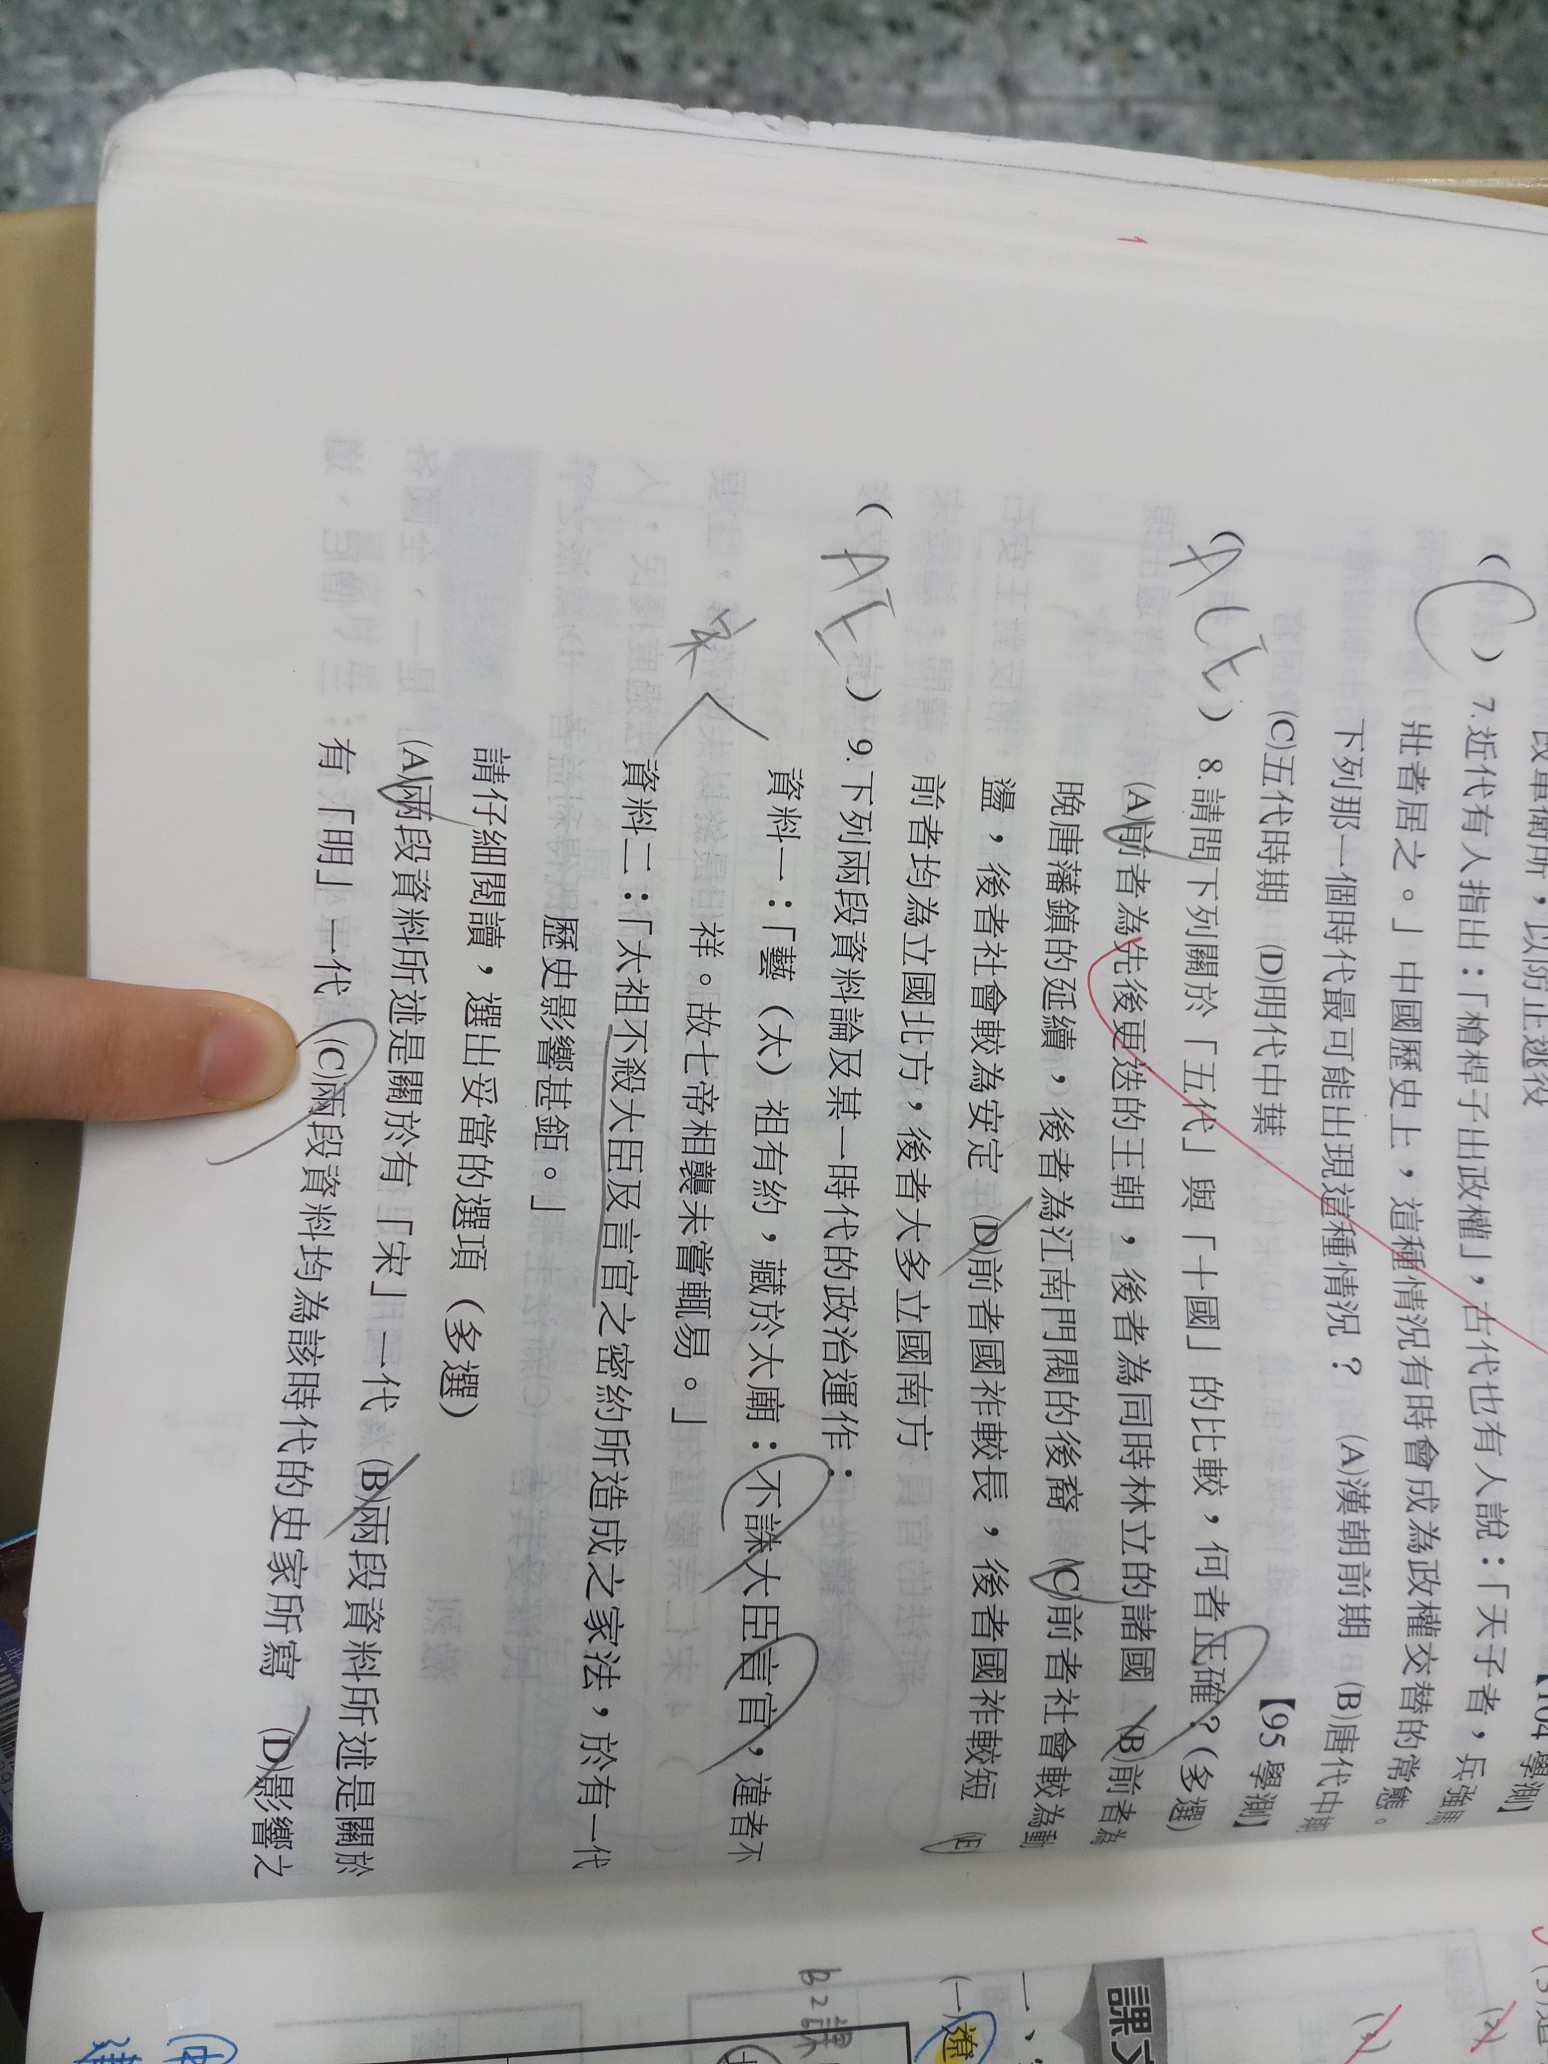 改單衛所，以防止逃役
【104 學測】
（C）7.近代有人指出：「槍桿子出政權」，古代也有人說：「天子者，兵強馬
壯者居之。」中國歷史上，這種情況有時會成為政權交替的常態。
下列那一個時代最可能出現這種情況？ (A)漢朝前期 (B)唐代中期
(C)五代時期 (D)明代中葉 【95 學測】
（ACE）8.請問下列關於「五代」與「十國」的比較，何者正確？(多選)
(A)前者為先後更迭的王朝，後者為同時林立的諸國 (B)前者為
晚唐藩鎮的延續，後者為江南門閥的後裔 (C)前者社會較為動
盪，後者社會較為安定 (D)前者國祚較長，後者國祚較短 (E)
前者均為立國北方，後者大多立國南方
（AE）9.下列兩段資料論及某一時代的政治運作：
資料一：「藝（太）祖有約，藏於太廟：不誅大臣言官，違者不
祥。故七帝相襲未嘗輒易。」
宋
資料二：「太祖不殺大臣及言官之密約所造成之家法，於有一代
歷史影響甚鉅。」
請仔細閱讀，選出妥當的選項（多選）
(A)兩段資料所述是關於有「宋」一代 (B)兩段資料所述是關於
有「明」一代 (C)兩段資料均為該時代的史家所寫 (D)影響之
1
課文
一、
(一)遼
(2)
(3)